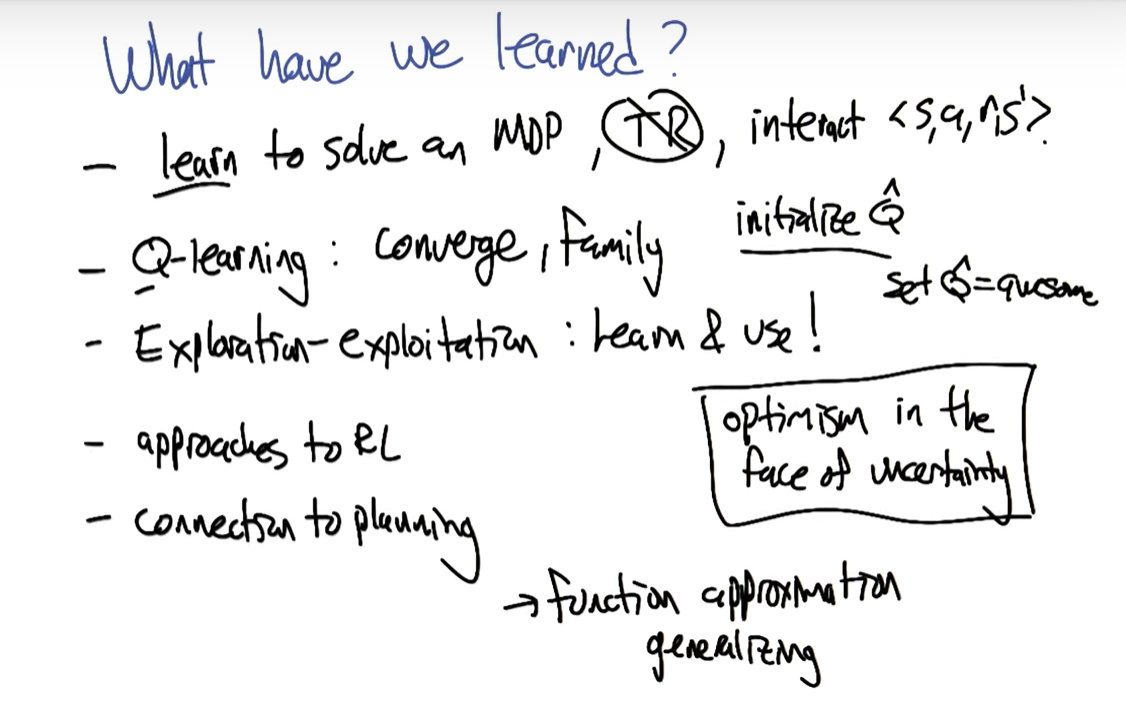 What have we learned?
- learn to solve an MDP, TR, interact <s,a,r,s'>
- Q-learning: converge, family
initialize Q̂
set Q̂=awesome
- Exploration-exploitation: Learn & use!
- approaches to RL
optimism in the
face of uncertainty
- connection to planning
→ function approximation
generalizing